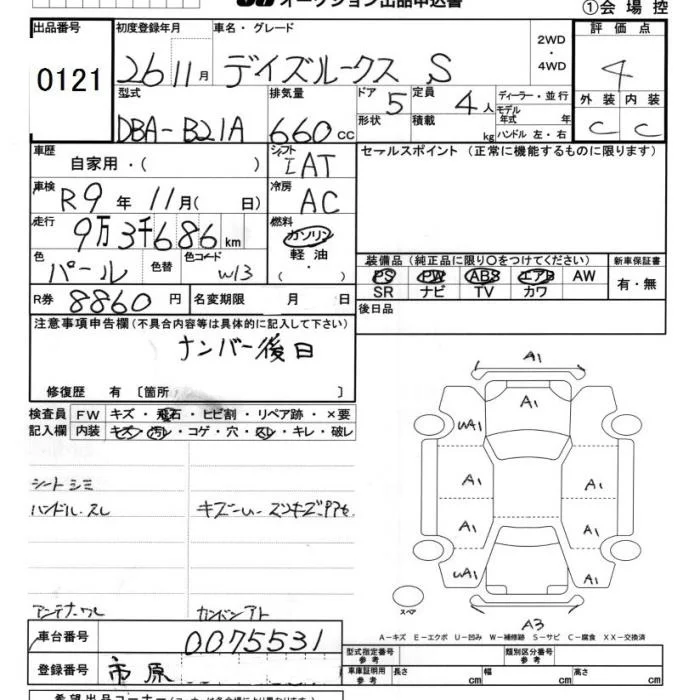 オークション出品申込書
①会場控
出品番号 初度登録年月 車名・グレード 2WD・4WD 評価点
0121 26 11月 デイズルークス S 4
型式 排気量 ドア 5 定員 4人 ディーラー・並行 外装 内装
DBA-B21A 660cc 形状 積載 kg モデル年式 年 ハンドル 左・右 C C
車歴 自家用・( ) シフト IAT セールスポイント (正常に機能するものに限ります)
車検 R9年 11月( 日) 冷房 AC
走行 9万3千686km 燃料 ガソリン
色 パール 色替 色コード W13 軽油・( )
装備品(純正品に限り○をつけてください) 新車保証書
PS PW ABS エアB AW 有・無
SR ナビ TV カワ
R券 8860円 名変期限 月 日 後日品
注意事項申告欄(不具合内容等は具体的に記入して下さい)
ナンバー後日
修復歴 有 〔箇所 〕
検査員 FW キズ・飛石・ヒビ割・リペア跡・×要
記入欄 内装 キズ・汚レ・コゲ・穴・スレ・キレ・破レ
シートシミ
ハンドル.スレ
アンテナ
A1
A1
WA1
A1 A1
A1 A1
WA1 A1
スペア
A3
A-キズ E-エクボ U-凹み W-補修跡 S-サビ C-腐食 XX-交換済
車台番号 0075531
型式指定番号 参考 類別区分番号 参考
登録番号 市原
車庫証明用 参考 長さ cm 幅 cm 高さ cm
希望出品コーナー